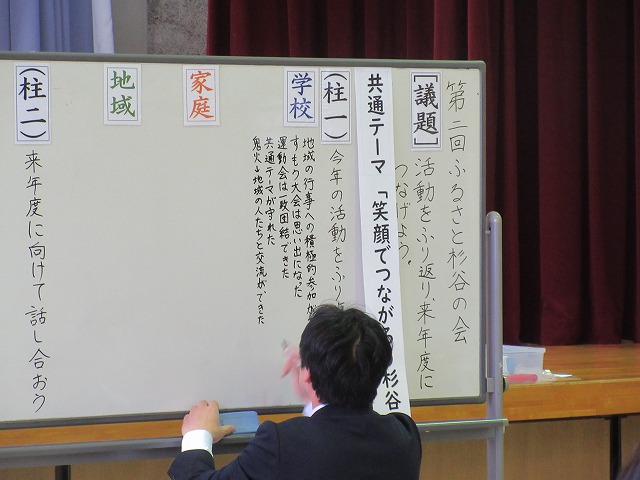 第二回ふるさと杉谷の会
［議題］
活動をふり返り、来年度に
つなげよう。
共通テーマ「笑顔でつながる 杉谷
（柱一）
今年の活動をふり返
学校
地域の行事への積極的参加が
すもう大会は思い出になった
運動会は一致団結できた
共通テーマが守れた
鬼火よ地域の人たちと交流ができた
家庭
地域
（柱二）
来年度に向けて話し合おう